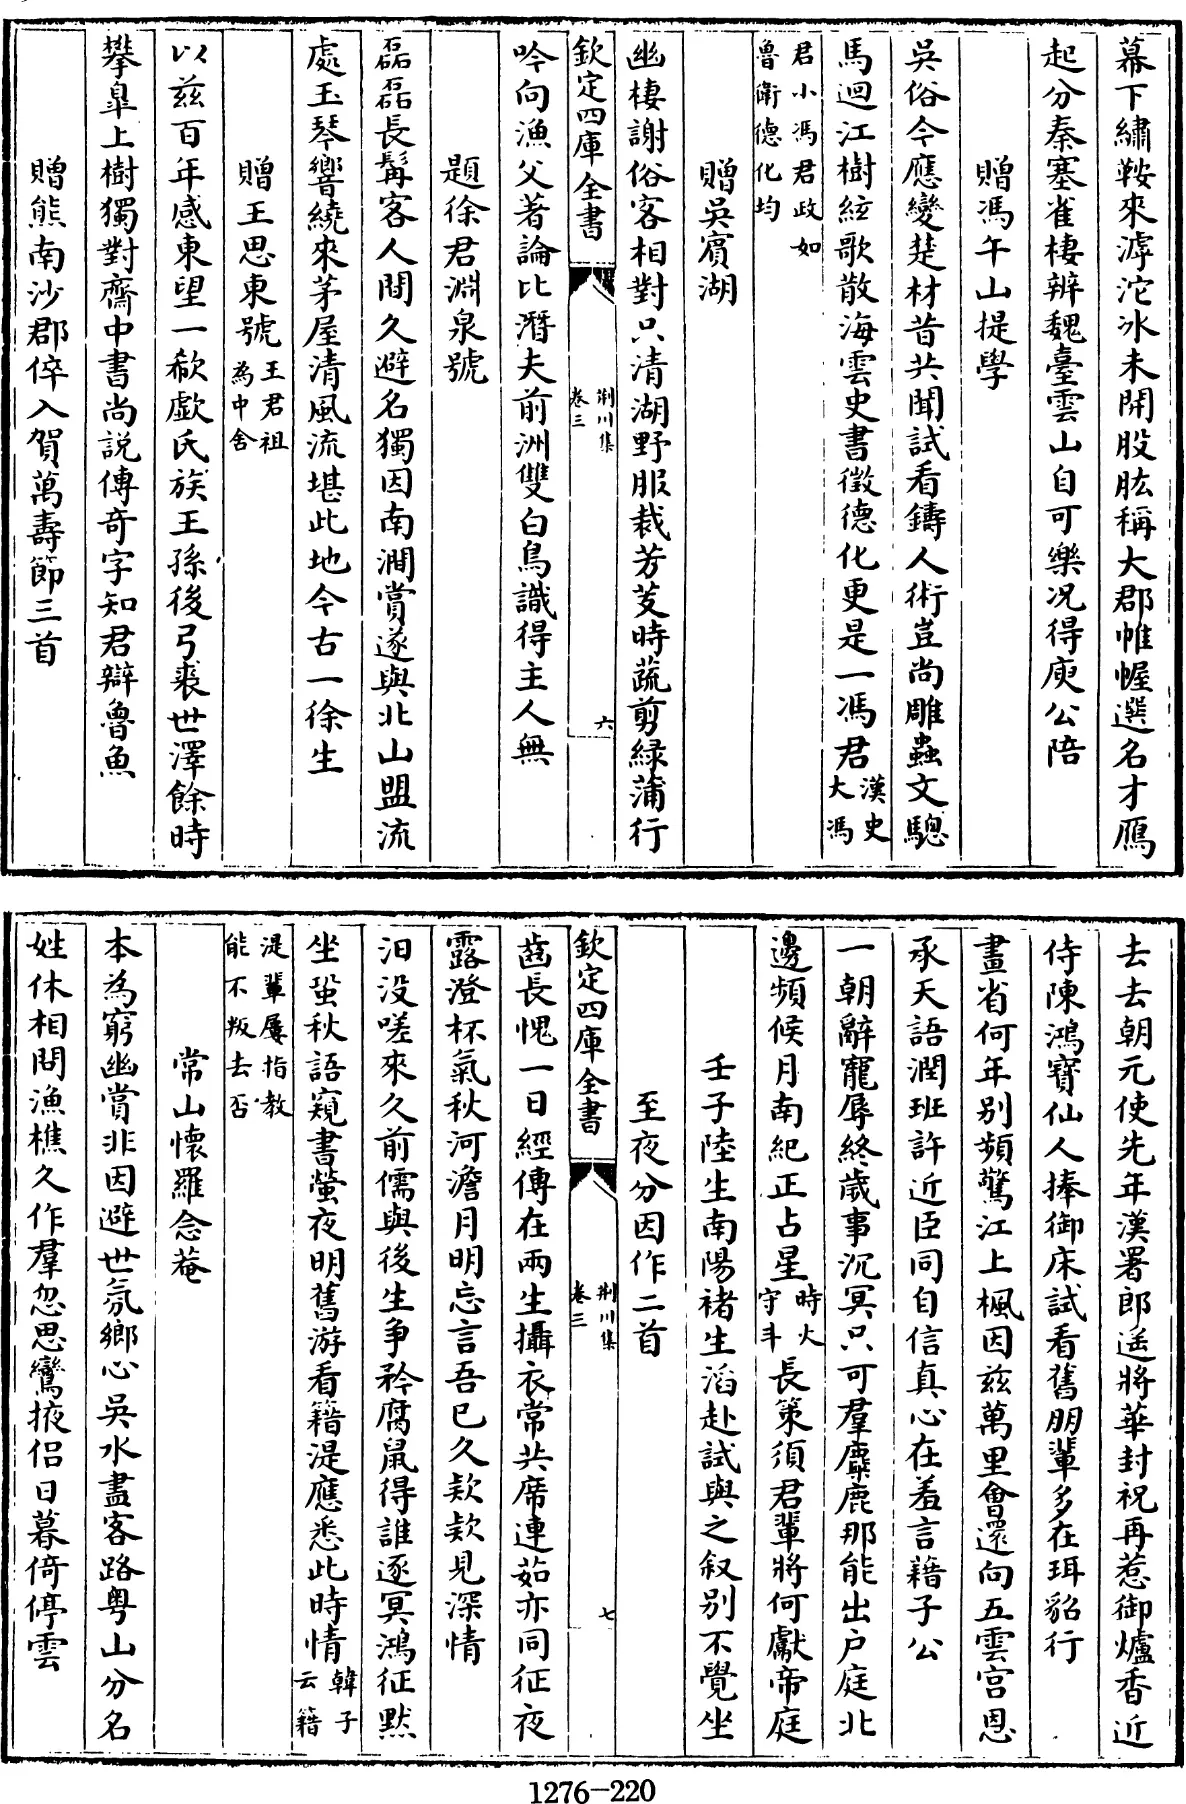 幕下繡鞍來滹沱冰未開股肱稱大郡帷幄選名才鴈
起分秦塞雀棲辨魏臺雲山自可樂况得庾公陪
贈馮午山提學
吳俗今應變楚材昔共聞試看鑄人術豈尚雕蟲文驄
馬迴江樹絃歌散海雲史書徵德化更是一馮君漢史大馮
君小馮君政如魯衛德化均
贈吳賓湖
幽棲謝俗客相對只清湖野服裁芳芰時蔬剪綠蒲行
欽定四庫全書 荆川集卷三 六
吟向漁父著論比潛夫前洲雙白鳥識得主人無
題徐君淵泉號
磊磊長髯客人間久避名獨因南澗賞遂與北山盟流
處玉琴響繞來茅屋清風流堪此地今古一徐生
贈王思東號王君祖為中舍
以兹百年感東望一欷歔氏族王孫後弓裘世澤餘時
攀皐上樹獨對齋中書尚説傳奇字知君辯魯魚
贈熊南沙郡倅入賀萬壽節三首
去去朝元使先年漢署郎遥將華封祝再惹御爐香近
侍陳鴻寳仙人捧御床試看舊朋輩多在珥貂行
畫省何年别頻驚江上楓因兹萬里會還向五雲宫恩
承天語潤班許近臣同自信真心在羞言藉子公
一朝辭寵辱終歲事沉冥只可羣麋鹿那能出户庭北
邊頻候月南紀正占星時火守斗長策須君輩將何獻帝庭
壬子陸生南陽禇生滔赴試與之叙别不覺坐
至夜分因作二首
欽定四庫全書 荆川集卷三 七
齒長愧一日經傳在兩生攝衣常共席連茹亦同征夜
露澄杯氣秋河澹月明忘言吾已久欵欵見深情
汨没嗟來久前儒與後生争矜腐鼠得誰逐冥鴻征默
坐蛩秋語窺書螢夜明舊游看籍湜應悉此時情韓子云籍
湜輩屢指教能不叛去否
常山懷羅念菴
本為窮幽賞非因避世氛鄉心吳水盡客路粤山分名
姓休相問漁樵久作羣忽思鸞掖侣日暮倚停雲
1276-220